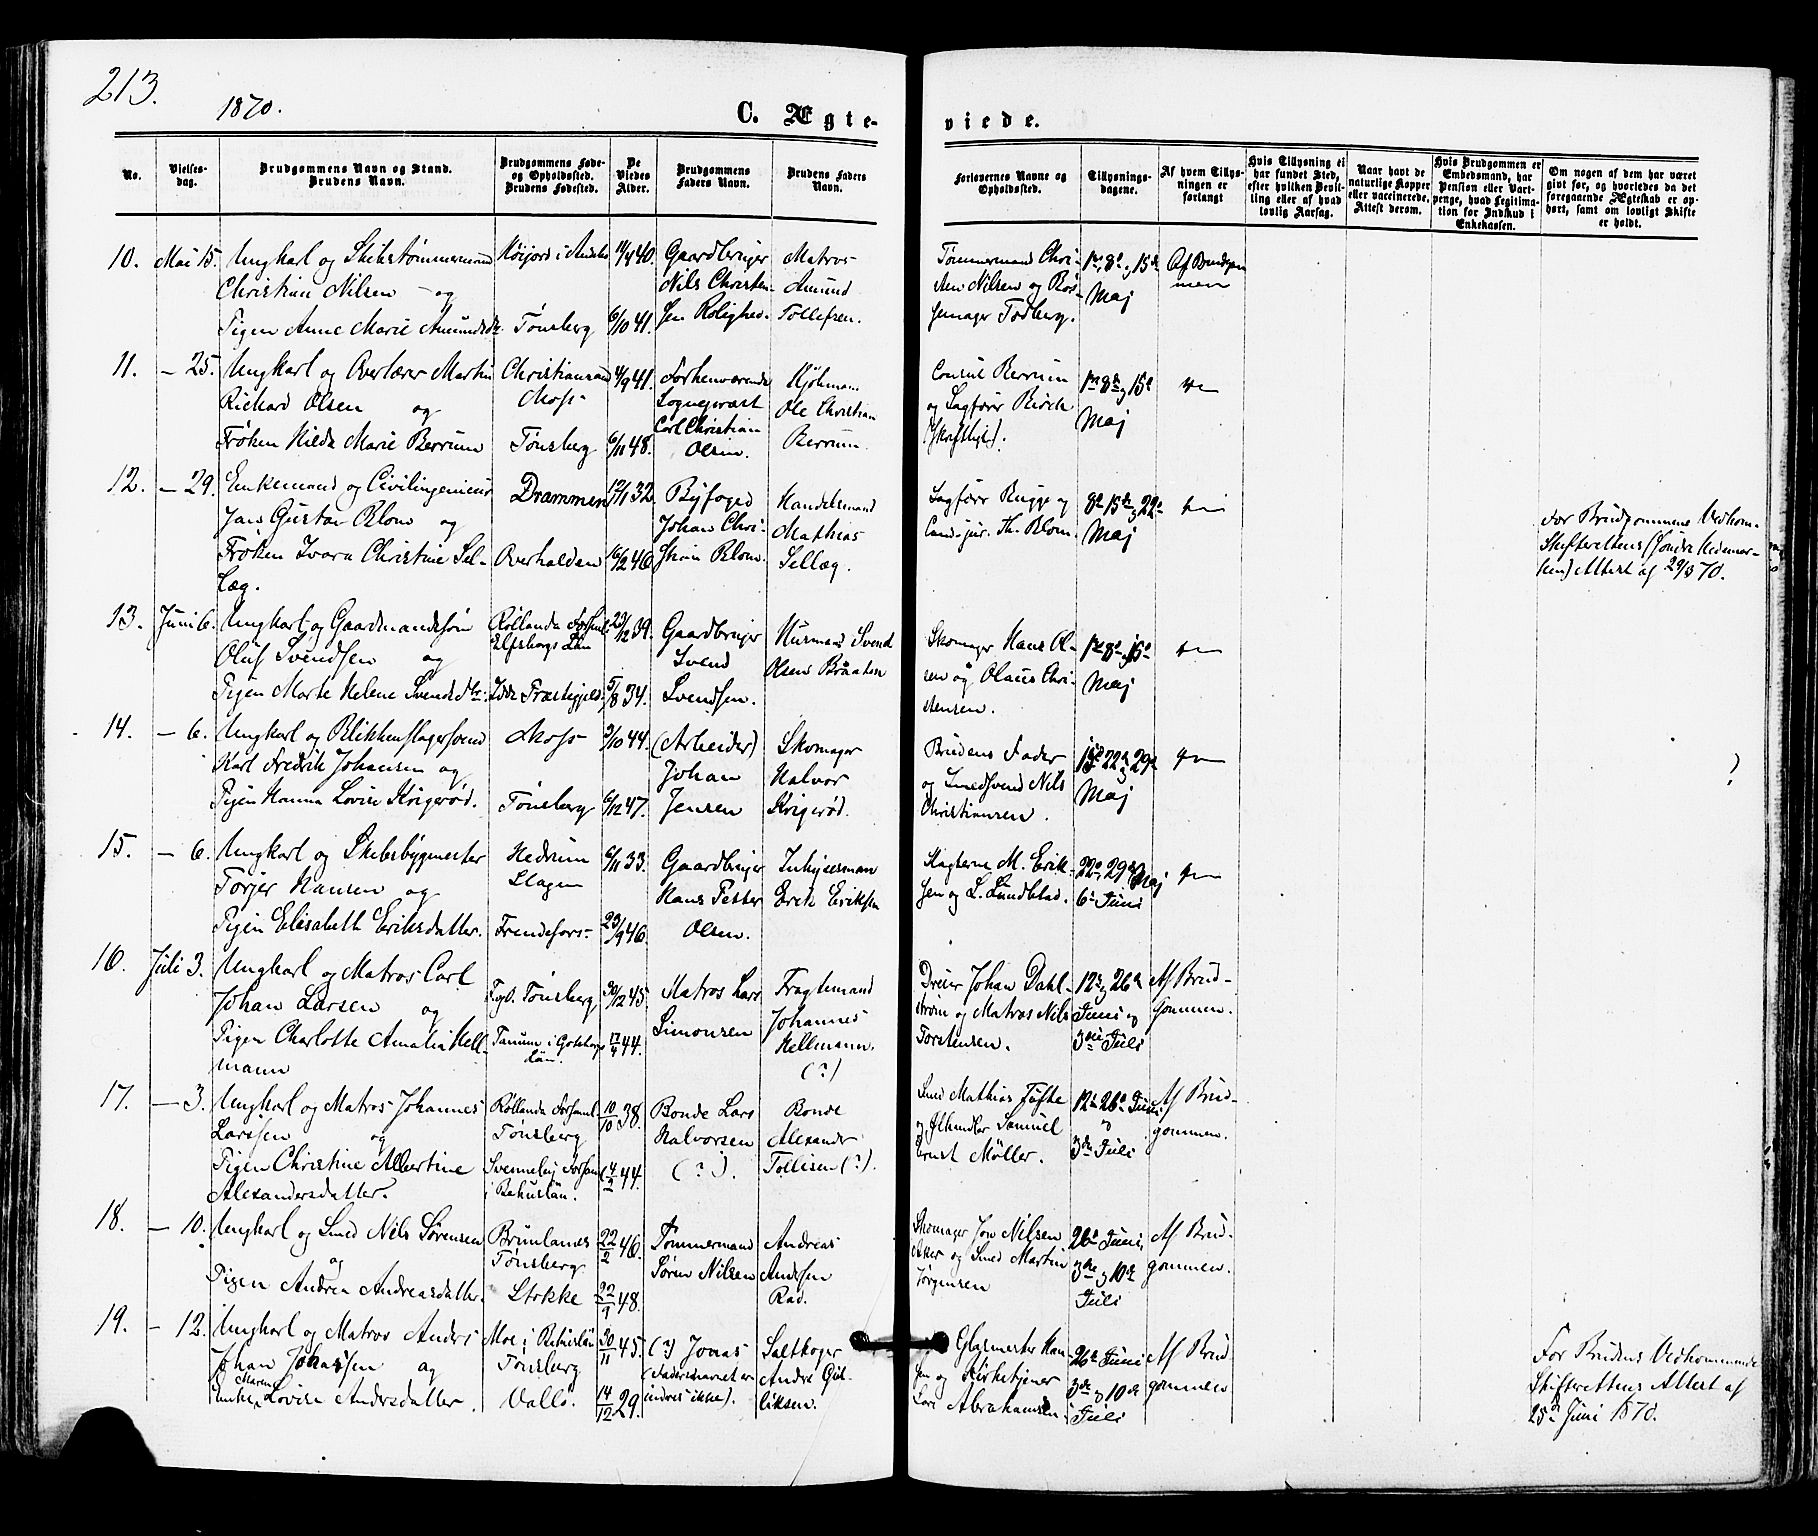 213.
1870.
C. Ægte-
viede.
No.
Vielses-
dag.
Brudgommens Navn og Stand.
Brudens Navn.
Brudgommens Føde-
og Opholdssted.
Brudens Fødested.
De
Viedes
Alder.
Brudgommens
Faders Navn.
Brudens Faders
Navn.
Forlovernes Navne og
Opholdssted.
Tillysnings-
dagene.
Af hvem Tillys-
ningen er
forlangt
Hvis Tillysning ei
har fundet Sted,
efter hvilken Bevil-
ling eller af hvad
lovlig Aarsag.
Naar havt de
naturlige Kopper
eller vaccinerede.
Attest derom.
Hvis Brudgommen er
Embedsmand, har
Pension eller Vart-
penge, hvad Legitima-
tion for Indskud i
Enkekassen.
Om nogen af dem har været
gift før, og hvorledes da det
foregaaende Ægteskab er op-
hørt, samt om lovligt Skifte
er holdt.
10. Mai 15. Ungkarl og Skibstømmermand
Christian Nilsen og
Pigen Anne Marie Amundsdr.
Høijord i Andebu
Tønsberg
11/4 40.
6/10 41.
Gaardbruger
Nils Christen-
sen Rolighed.
Matros
Amund
Tollefsen.
Tømmermand Chri-
sten Nilsen og
Todberg.
1ste, 8de og 15de
Maj
Af Brudgom-
men
11. – 25. Ungkarl og Overlærer Martin
Richard Olsen og
Frøken Hilda Marie Berrum
Christianssand
Moss
Tønsberg
4/9 41.
6/11 48.
Forhenværende
Sogneprest
Carl Christian
Olsen.
Kjøbmand
Ole Christian
Berrum.
Consul Berrum
og Sagfører Birch
(skriftligt).
1ste 8de og 15de
Maj
12. – 29. Enkemand og Civilingeniør
Jens Gustav Blom og
Frøken Ivara Christine Sel-
læg.
Drammen
Overhalden
12/1 32.
16/2 46.
Byfoged
Johan Chri-
stian Blom.
Handelsmand
Mathias
Sellæg.
Sagfører Bugge og
Cand. jur. Th. Blom.
8de 15de og 22de
Maj
For Brudgommens Vedkom-
Skifterettens (Søndre Hedemar-
ken) Attest af 29/3 70.
13. Juni 6. Ungkarl og Gaardmandssøn
Oluf Svendsen og
Pigen Marte Helene Svendsdtr.
Røllanda Forsaml.
Elfsborgs Län
Idde Præstegjeld.
23/12 39.
5/8 34.
Gaardbruger
Svend
Svendsen.
Husmand Svend
Olsen Bråaten
Skomager Hans Ol-
sen og Olaus Chri-
stensen.
1ste 8de og 15de
Maj
14. – 6. Ungkarl og Blikkenslagersvend
Karl Fredrik Johansen og
Pigen Hanna Lovise Krigerød.
Moss
Tønsberg
3/10 44.
6/12 47.
(Arbeider)
Johan
Jensen
Skomager
Halvor
Krigerød.
Brudens Fader
og Smedsvend Nils
Christiansen.
15de 22de og 29de
Maj
?
15. – 6. Ungkarl og Skibsbygmester
Torjer Hansen og
Pigen Elisabeth Eriksdatter.
Hedrum
Slagen
Frendefors
6/11 33.
23/9 46.
Gaardbruger
Hans Petter
Olsen.
Erik Eriksen
Slagterne M. Erik-
sen og L. Lundblad.
22de, 29de Maj
6te Juni
16. Juli 3. Ungkarl og Matros Carl
Johan Larsen og
Pigen Charlotte Amalia Hell-
mann
Fgd. Tønsberg
Tanum i Gøteborgs
Län.
30/12 45.
17/4 44.
Matros Lars
Simonsen
Fragtemand
Johannes
Hellmann.
(?)
Dreier Johan Dahl-
strøm og Matros Nils
Torstensen.
12te og 26de
Juni og
3die Juli
Af Brud-
gommen.
17. – 3. Ungkarl og Matros Johannes
Larssen og
Pigen Christine Albertine
Alexandersdatter.
Røllanda Forsaml.
Tønsberg
Svenneby Forsaml.
i Bahuslän.
10/10 38.
4/2 44.
Bonde Lars
Halvorsen
(?).
Bonde
Alexander
Tollisen (?).
Smed Mathias Tufte
og Ølhandler Samuel
Ernst Møller.
12te 26de Juni
og
3die Juli
Af Brud-
gommen.
18. – 10. Ungkarl og Smed Nils Sørensen
og
Pigen Andrea Andreasdatter.
Brunlanes
Tønsberg
Stokke
22/2 46.
22/9 48.
Tømmermand
Søren Nilsen
Andreas
Andersen
Rød.
Skomager Jon Nilsen
Aker og Smed Martin
Jørgensen
26de Juni,
3die og 10de
Juli
Af Brud-
gommen.
19. – 12. Ungkarl og Matros Anders
Johan Johansen og
Enke Maren Lovise Andersdatter.
Moe i Bahuslän
Tønsberg
Vallø.
30/11 45.
14/12 29.
(?) Jonas
(Fadersnavnet er
andres ikke).
Saltkoger
Andre Gul-
liksen.
Glasmester Han-
sen og Kirketjener
Abrahamsen
26de Juni
3die og 10de
Juli
Af Brud
gommen
For Brudens Vedkommende
Skifterettens Attest af
25de Juni 1870.